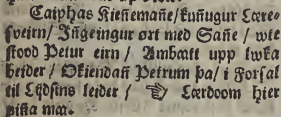 Caiphas Kieñemañe / kuñugur Lære-
sveirn / Jñgeingur ört med Sañe / wte
stood Petur eirn / Ambætt upp lwka
beider / Øfiendañ Petrum þa / i Forsal
til Lydsins leider / ☞ Lærdoom hier
pijka mæ.